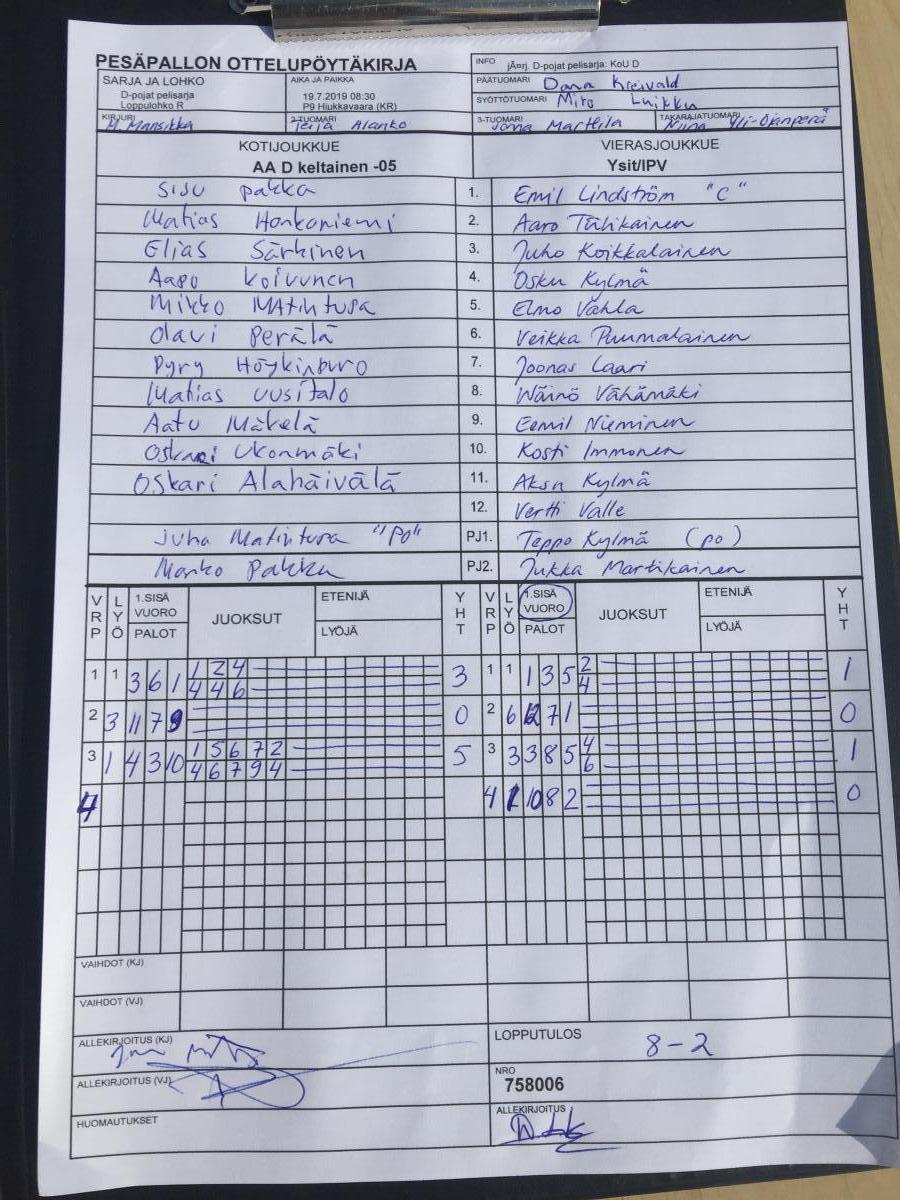 PESÄPALLON OTTELUPÖYTÄKIRJA
INFO jÃ¤rj. D-pojat pelisarja: KoU D
SARJA JA LOHKO
D-pojat pelisarja
Loppulohko R
AIKA JA PAIKKA
19.7.2019 08:30
P9 Hiukkavaara (KR)
PÄÄTUOMARI Dana Kreivald
SYÖTTÖTUOMARI Miro Luikku
KIRJURI M. Mansikka
2-TUOMARI Teija Alanko
3-TUOMARI Joona Marttila
TAKARAJATUOMARI Niina Yli-Ojanperä
KOTIJOUKKUE
AA D keltainen -05
VIERASJOUKKUE
Ysit/IPV
Sisu Pakka 1. Emil Lindström "C"
Matias Honkaniemi 2. Aaro Tähkäinen
Elias Särkinen 3. Juho Koikkalainen
Aapo Koivunen 4. Osku Kylmä
Mikko Matintupa 5. Elmo Vähla
Olavi Perälä 6. Veikka Puumalainen
Pyry Höykinpuro 7. Joonas Laari
Matias Uusitalo 8. Wäinö Vähämäki
Aatu Mäkelä 9. Eemil Nieminen
Oskari Ukonmäki 10. Kosti Immonen
Oskari Alahäivälä 11. Aksu Kylmä
12. Vertti Valle
Juha Matintupa "PO" PJ1. Teppo Kylmä (po)
Marko Pakka PJ2. Jukka Martikainen
VRP LYÖ 1.SISÄ VUORO PALOT JUOKSUT ETENIJÄ LYÖJÄ YHT VRP LYÖ 1.SISÄ VUORO PALOT JUOKSUT ETENIJÄ LYÖJÄ YHT
1 1 3 6 1 1 2 4 3 1 1 1 3 5 2 1
4 4 6 4
2 3 11 7 9 0 2 6 12 7 1 0
3 1 4 3 10 1 5 6 7 2 5 3 3 3 8 5 4 1
4 6 7 9 4 6
4 4 1 10 8 2 0
VAIHDOT (KJ)
VAIHDOT (VJ)
ALLEKIRJOITUS (KJ)
LOPPUTULOS 8-2
ALLEKIRJOITUS (VJ)
NRO
758006
HUOMAUTUKSET
ALLEKIRJOITUS